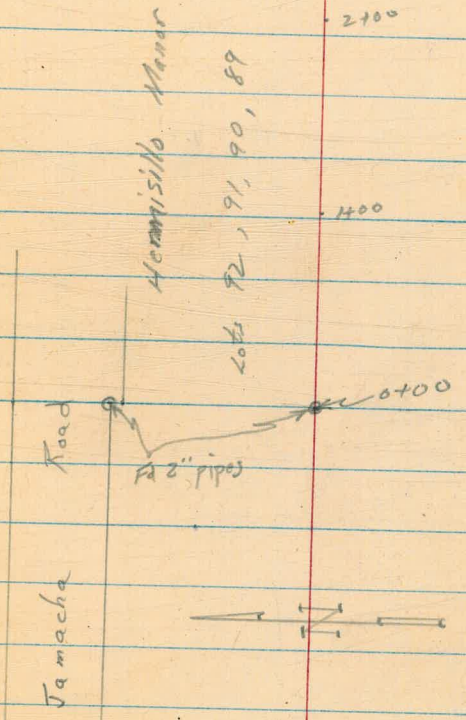 2+00
Hermisillo Manor
Lots 92, 91, 90, 89
1+00
0+00
Fd 2" pipes
Jamacha Road
N